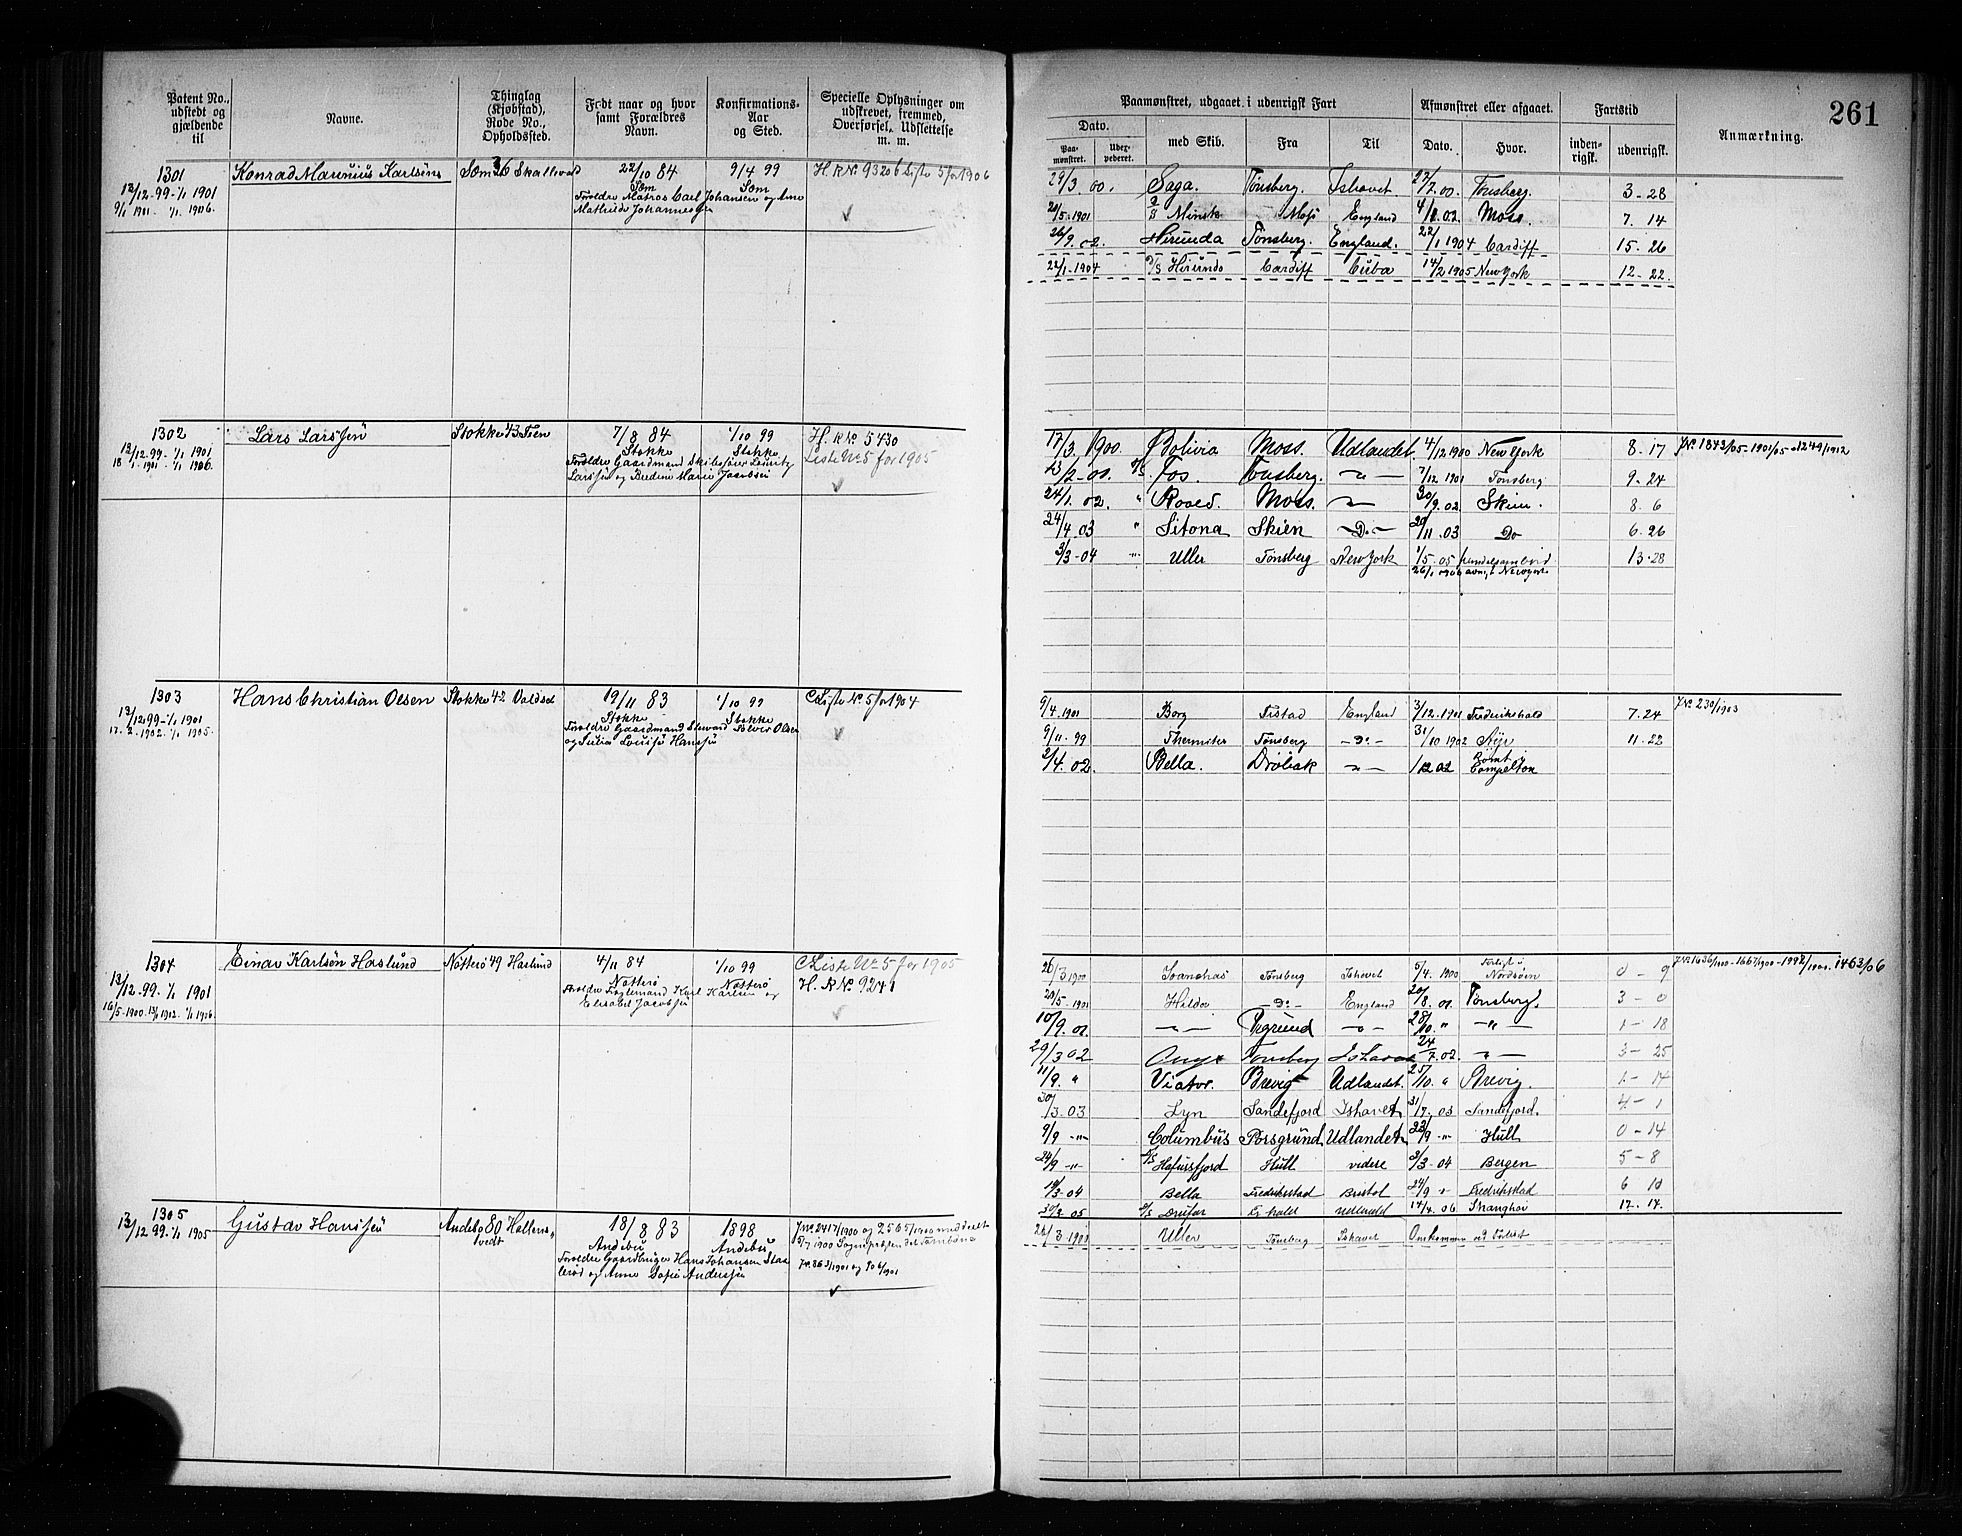 Patent No., udstedt og gjældende til
Navne.
Thinglag (Kjøbstad), Rode No., Opholdssted.
Født naar og hvor samt Forældres Navn.
Konfirmations-Aar og Sted.
Specielle Oplysninger om udskrevet, fremmed, Overførsel, Udslettelse m. m.
1301
12/12-99-1/1 1901
9/1 1901 1/1 1906.
Konrad Maurinius Karlsen
Sem 36 Skallevold
22/10 84
Sem
Forældre Matros Carl Johansen og Ane
Mathilde Johannesen
9/4 99
Sem
H. R No 9320 6 Liste 5 for 1906
1302
12/12-99-1/1 1901
18/1-1901-1/1 1906.
Lars Larssen
Stokke 43 Feen
7/8 84
Stokke
Forældre Gaardmand Skibsfører Lauritz
Larssen og Bredine Marie Jacobsen
1/10 99
Stokke
H. R No 5430
Liste No 5 for 1905
1303
12/12 99-1/1 1901
17-2-1902-1/1 1905.
Hans Christian Olsen
Stokke 42
19/11 83
Stokke
Forældre Gaardmand Steward Olsen
og Julia Louise Hansen
1/10 99
Stokke
Liste No 5 for 1904
1304
12/12-99. 1/1 1901
16/5-1900. 1/1 1906.
Einar Karlsen Haslund
Nøtterø 49 Haslund
4/11 84
Nøtterø
Forældre Karl Karlsen og
Elisabet Jacobsen
1/10 99
Nøtterø
Liste No 5 for 1905
H. R No 9241
1305
12/12 99-1/1 1905
Gustav Hanssen
Andebo 80
18/8 83
Andebu
Forældre Gaardbruger Hans Johansen
og Anne Sofie Anderssen
1898
Andebu
J No 2417/1900 og 2565/1900 meddeelt
J No 863/1901 og 906/1901
Paamønstret, udgaaet i udenrigsk Fart
Afmønstret eller afgaaet.
Fartstid
Anmærkning.
261
Dato.
Paa-mønstret.
Uderpederet.
med Skib.
Fra
Til
Dato.
Hvor.
inden-rigsk.
udenrigsk.
29/3. 00. Saga. Tønsberg. Ishavet 27/7. 00. Tønsberg. 3-28
20/5-1901 Minsk Moss England 4/1. 02. Moss. 7. 14
26/9. 02. Hirundo Tønsberg. England. 22/1 1904 Cardiff 15-26
22/1-1904 Hirundo Cardiff Cuba 14/2 1905 New York 12-22.
17/3. 1900. Bolivia Moss. Udlandet. 4/12 1900 New York 8. 17 J No 1343/05-1901/05-1249/1912
Tønsberg. 7/12 1901 Tønsberg 9-24
24/1. 02. " Moss. 30/9. 02 Skien. 8. 6
24/4. 03 " Sitona Skien -Do- 20/11. 03 Do 6. 26
3/3-04 " Uller Tønsberg New York 1/5-05 13-28
26/1 1906 New York
9/4. 1901 Borg Tistad England 3/12. 1901 Frederikshald 7. 24 J No 230/1903
9/11-99 Thermutes Tønsberg -Do- 31/10 1902 Ayr 11. 22
2/4. 02. Bella. Drøbak 02 Rømt i Campelton
26/3 1900 Tønsberg Ishavet 5/4. 1900 Forlist i Nordsøen 0-9 1463/06
20/5-1901 Haldor -Do- England 20/8. 01 Tønsberg. 3-0
10/9. 01 28/10. " 1-18
29/3 02 Onyx Tønsberg Ishavet 24/7. 02. 3-25
11/9. " Viator. Brevig Udlandet. 25/10. " Brevig. 1-14
30/3. 03 Lyn Sandefjord Ishavet 31/7. 03 Sandefjord. 4-1
9/9 Columbus Porsgrund Udlandet 23/9 Hull 0-14
24/9 Hafursfjord Hull videre 3/3-04 Bergen 5-8
19/3. 04 Bella Fredriksstad Bristol 24/9 Fredriksstad 6 10
30/3. 05 Drufar Udlandet 14/4. 06 Shanghai 12-14.
26/3 1900 Uller Tønsberg Ishavet Omkommen ved Forliset